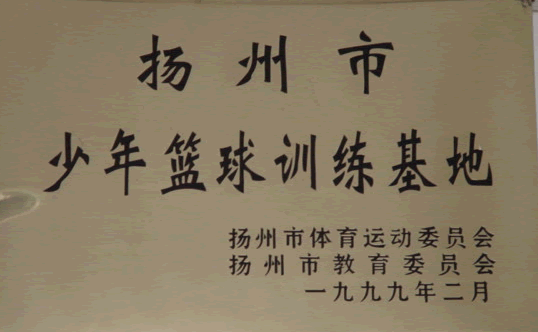 扬州市
少年篮球训练基地
扬州市体育运动委员会
扬州市教育委员会
一九九九年二月